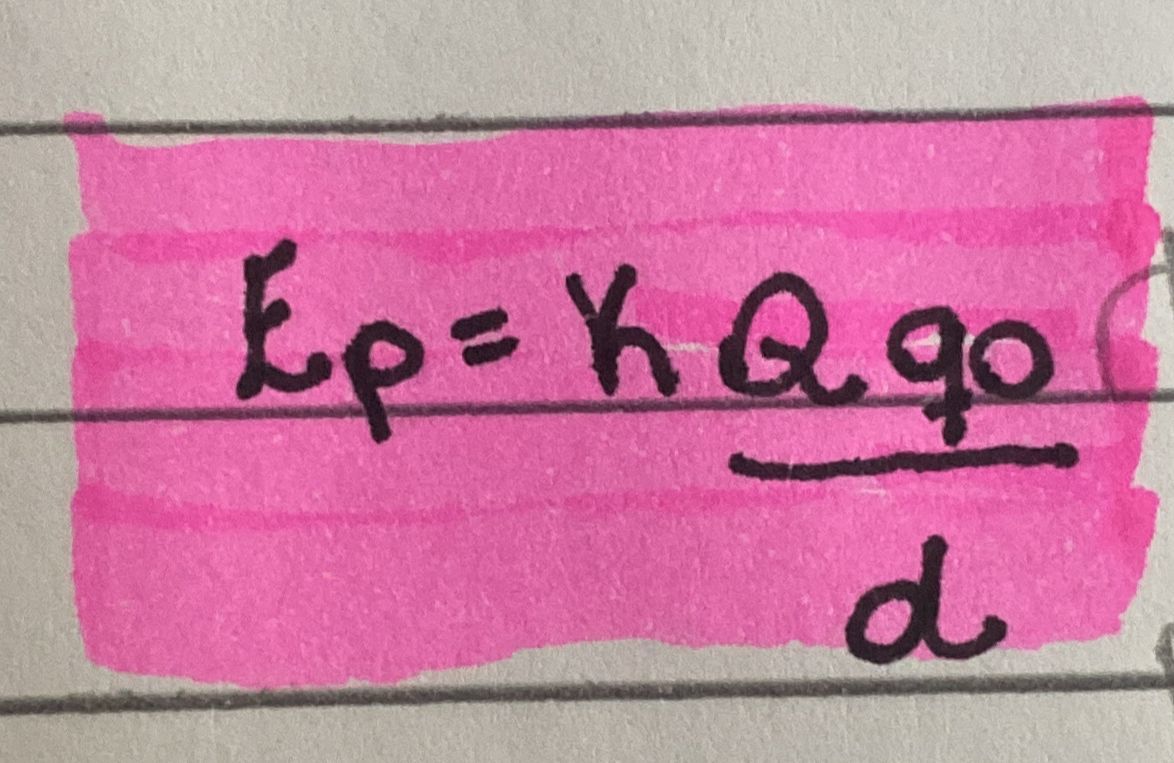 Ep = K Q q0
d